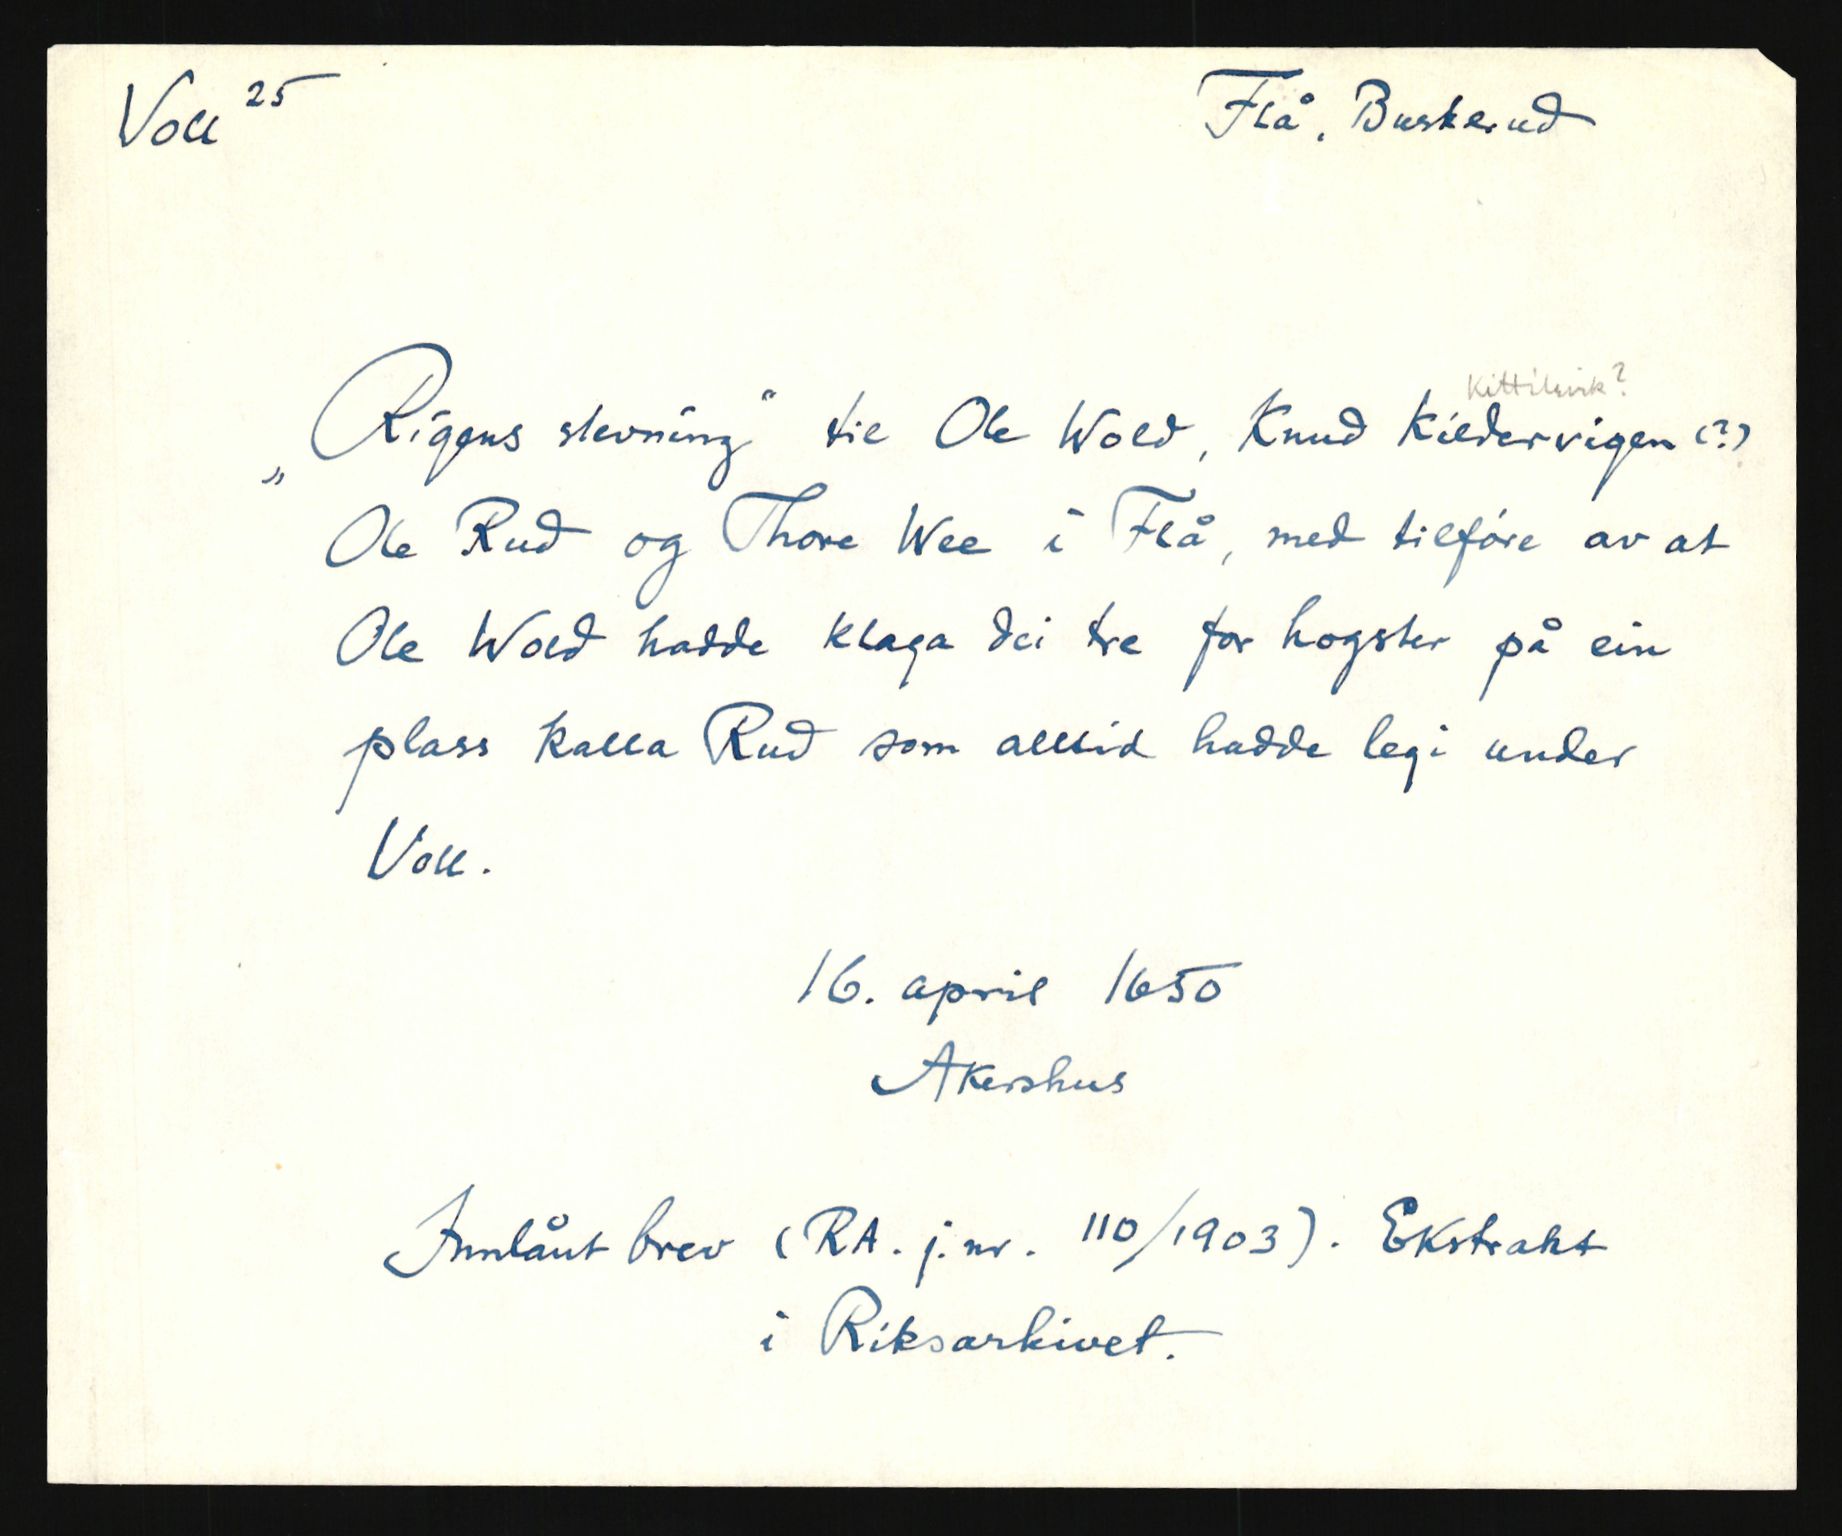 Voll 25
Flå, Buskerud
Kittilsvik?
„Rigens stevning“ til Ole Wold, Knud Kildervigen (?)
Ole Rud og Thore Wee i Flå, med tilføre av at
Ole Wold hadde klaga dei tre for hogster på ein
plass kalla Rud som alltid hadde legi under
Voll.
16. april 1650
Akershus
Innlånt brev (RA. j.nr. 110/1903). Ekstrakt
i Riksarkivet.